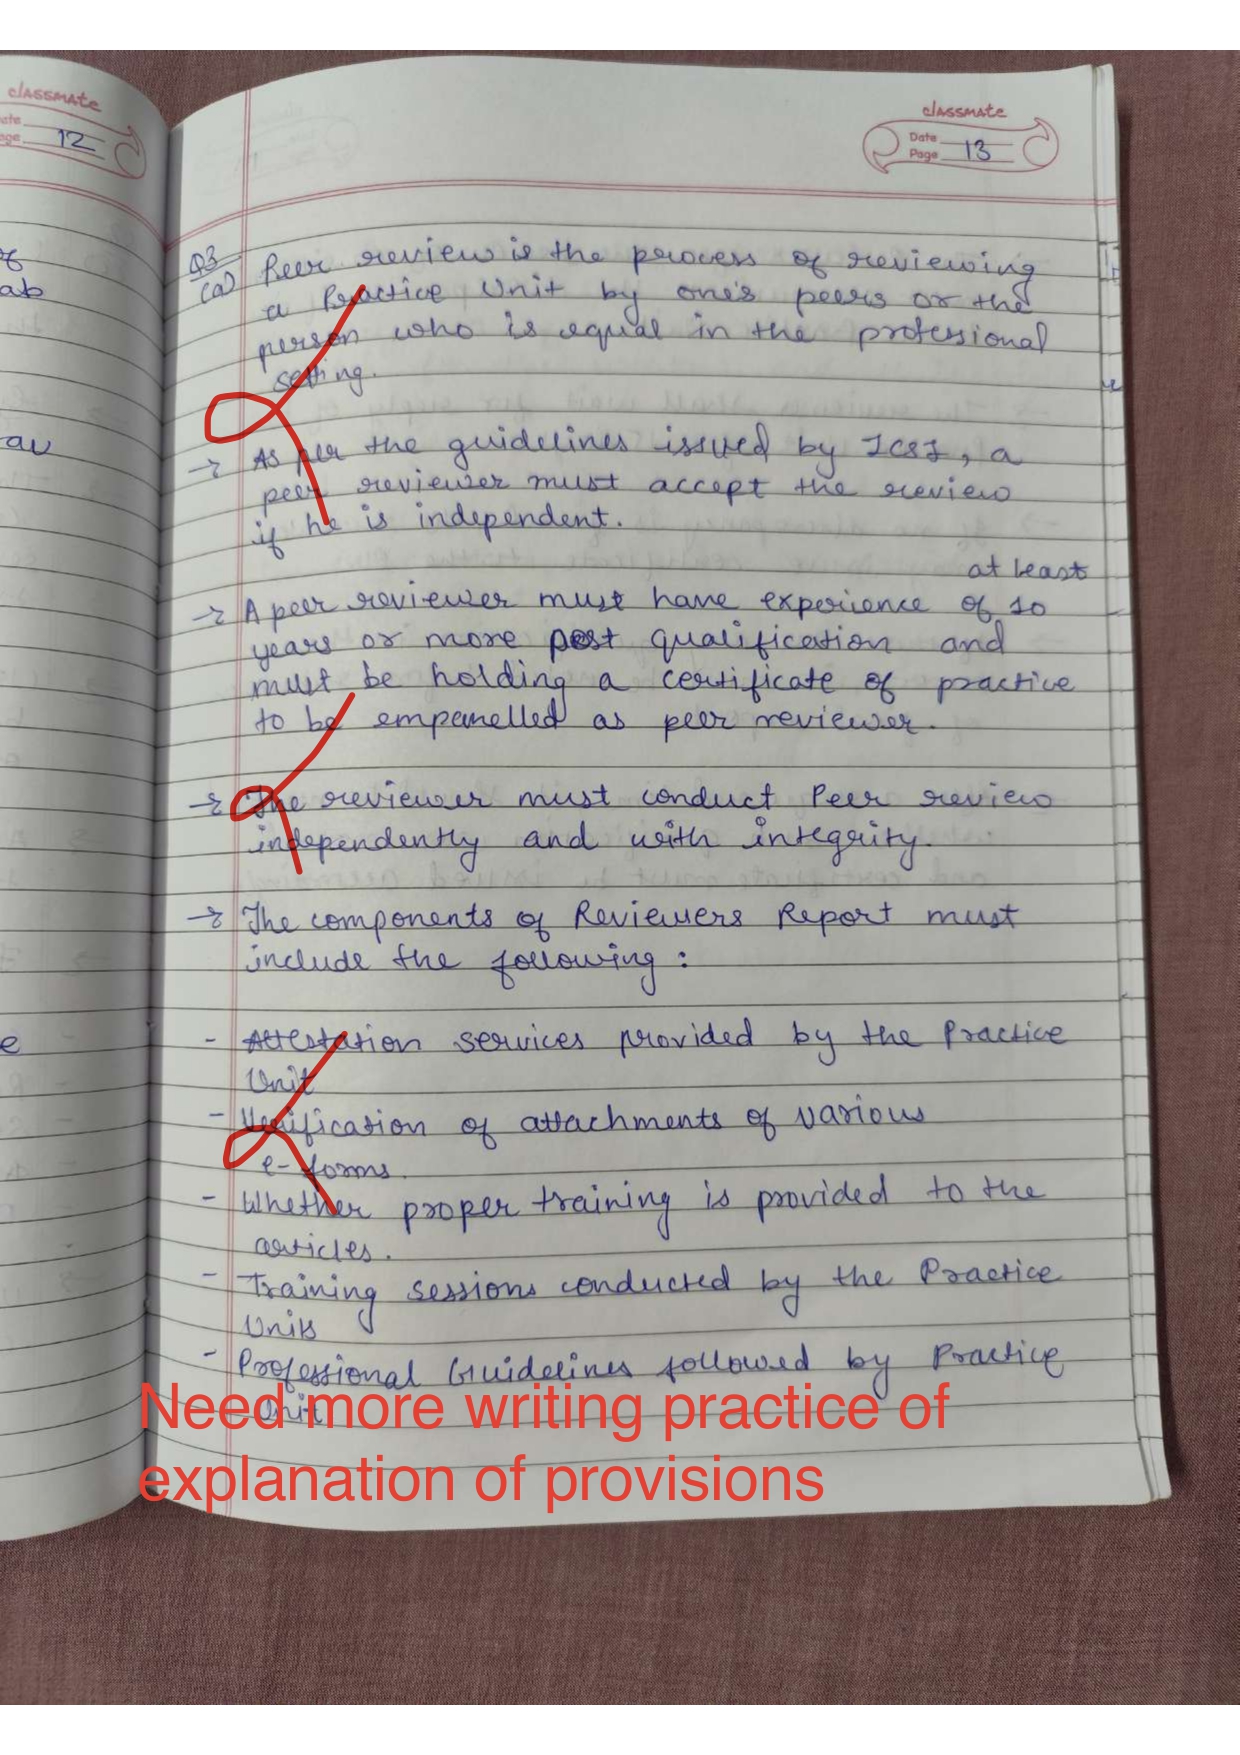 classmate
Date
Page 12
classmate
Date
Page 13
ab
e
Q3
(a) Peer review is the process of reviewing
a Practice Unit by one's peers or the
person who is equal in the professional
setting.
→ As per the guidelines issued by ICSI, a
peer reviewer must accept the review
if he is independent.
at least
→ A peer reviewer must have experience of 10
years or more post qualification and
must be holding a certificate of practice
to be empanelled as peer reviewer.
→ The reviewer must conduct Peer review
independently and with integrity.
→ The components of Reviewers Report must
include the following :
- Attestation services provided by the Practice
Unit
- Verification of attachments of various
e-forms.
- Whether proper training is provided to the
articles.
- Training sessions conducted by the Practice
Units
- Professional Guidelines followed by Practice
Unit
Need more writing practice of
explanation of provisions